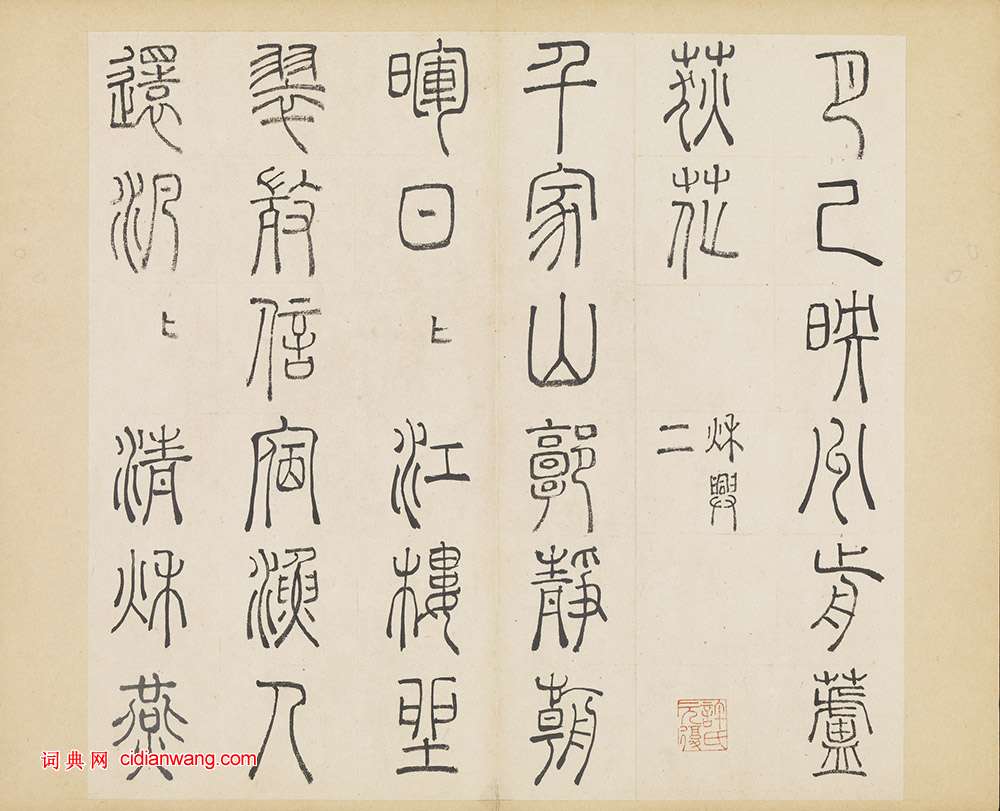 月已映洲前蘆
荻花
秋興
二
許氏元復
千家山郭靜朝
暉日〻江樓坐
翠微信宿漁人
還汎〻清秋燕
词典网 cidianwang.com